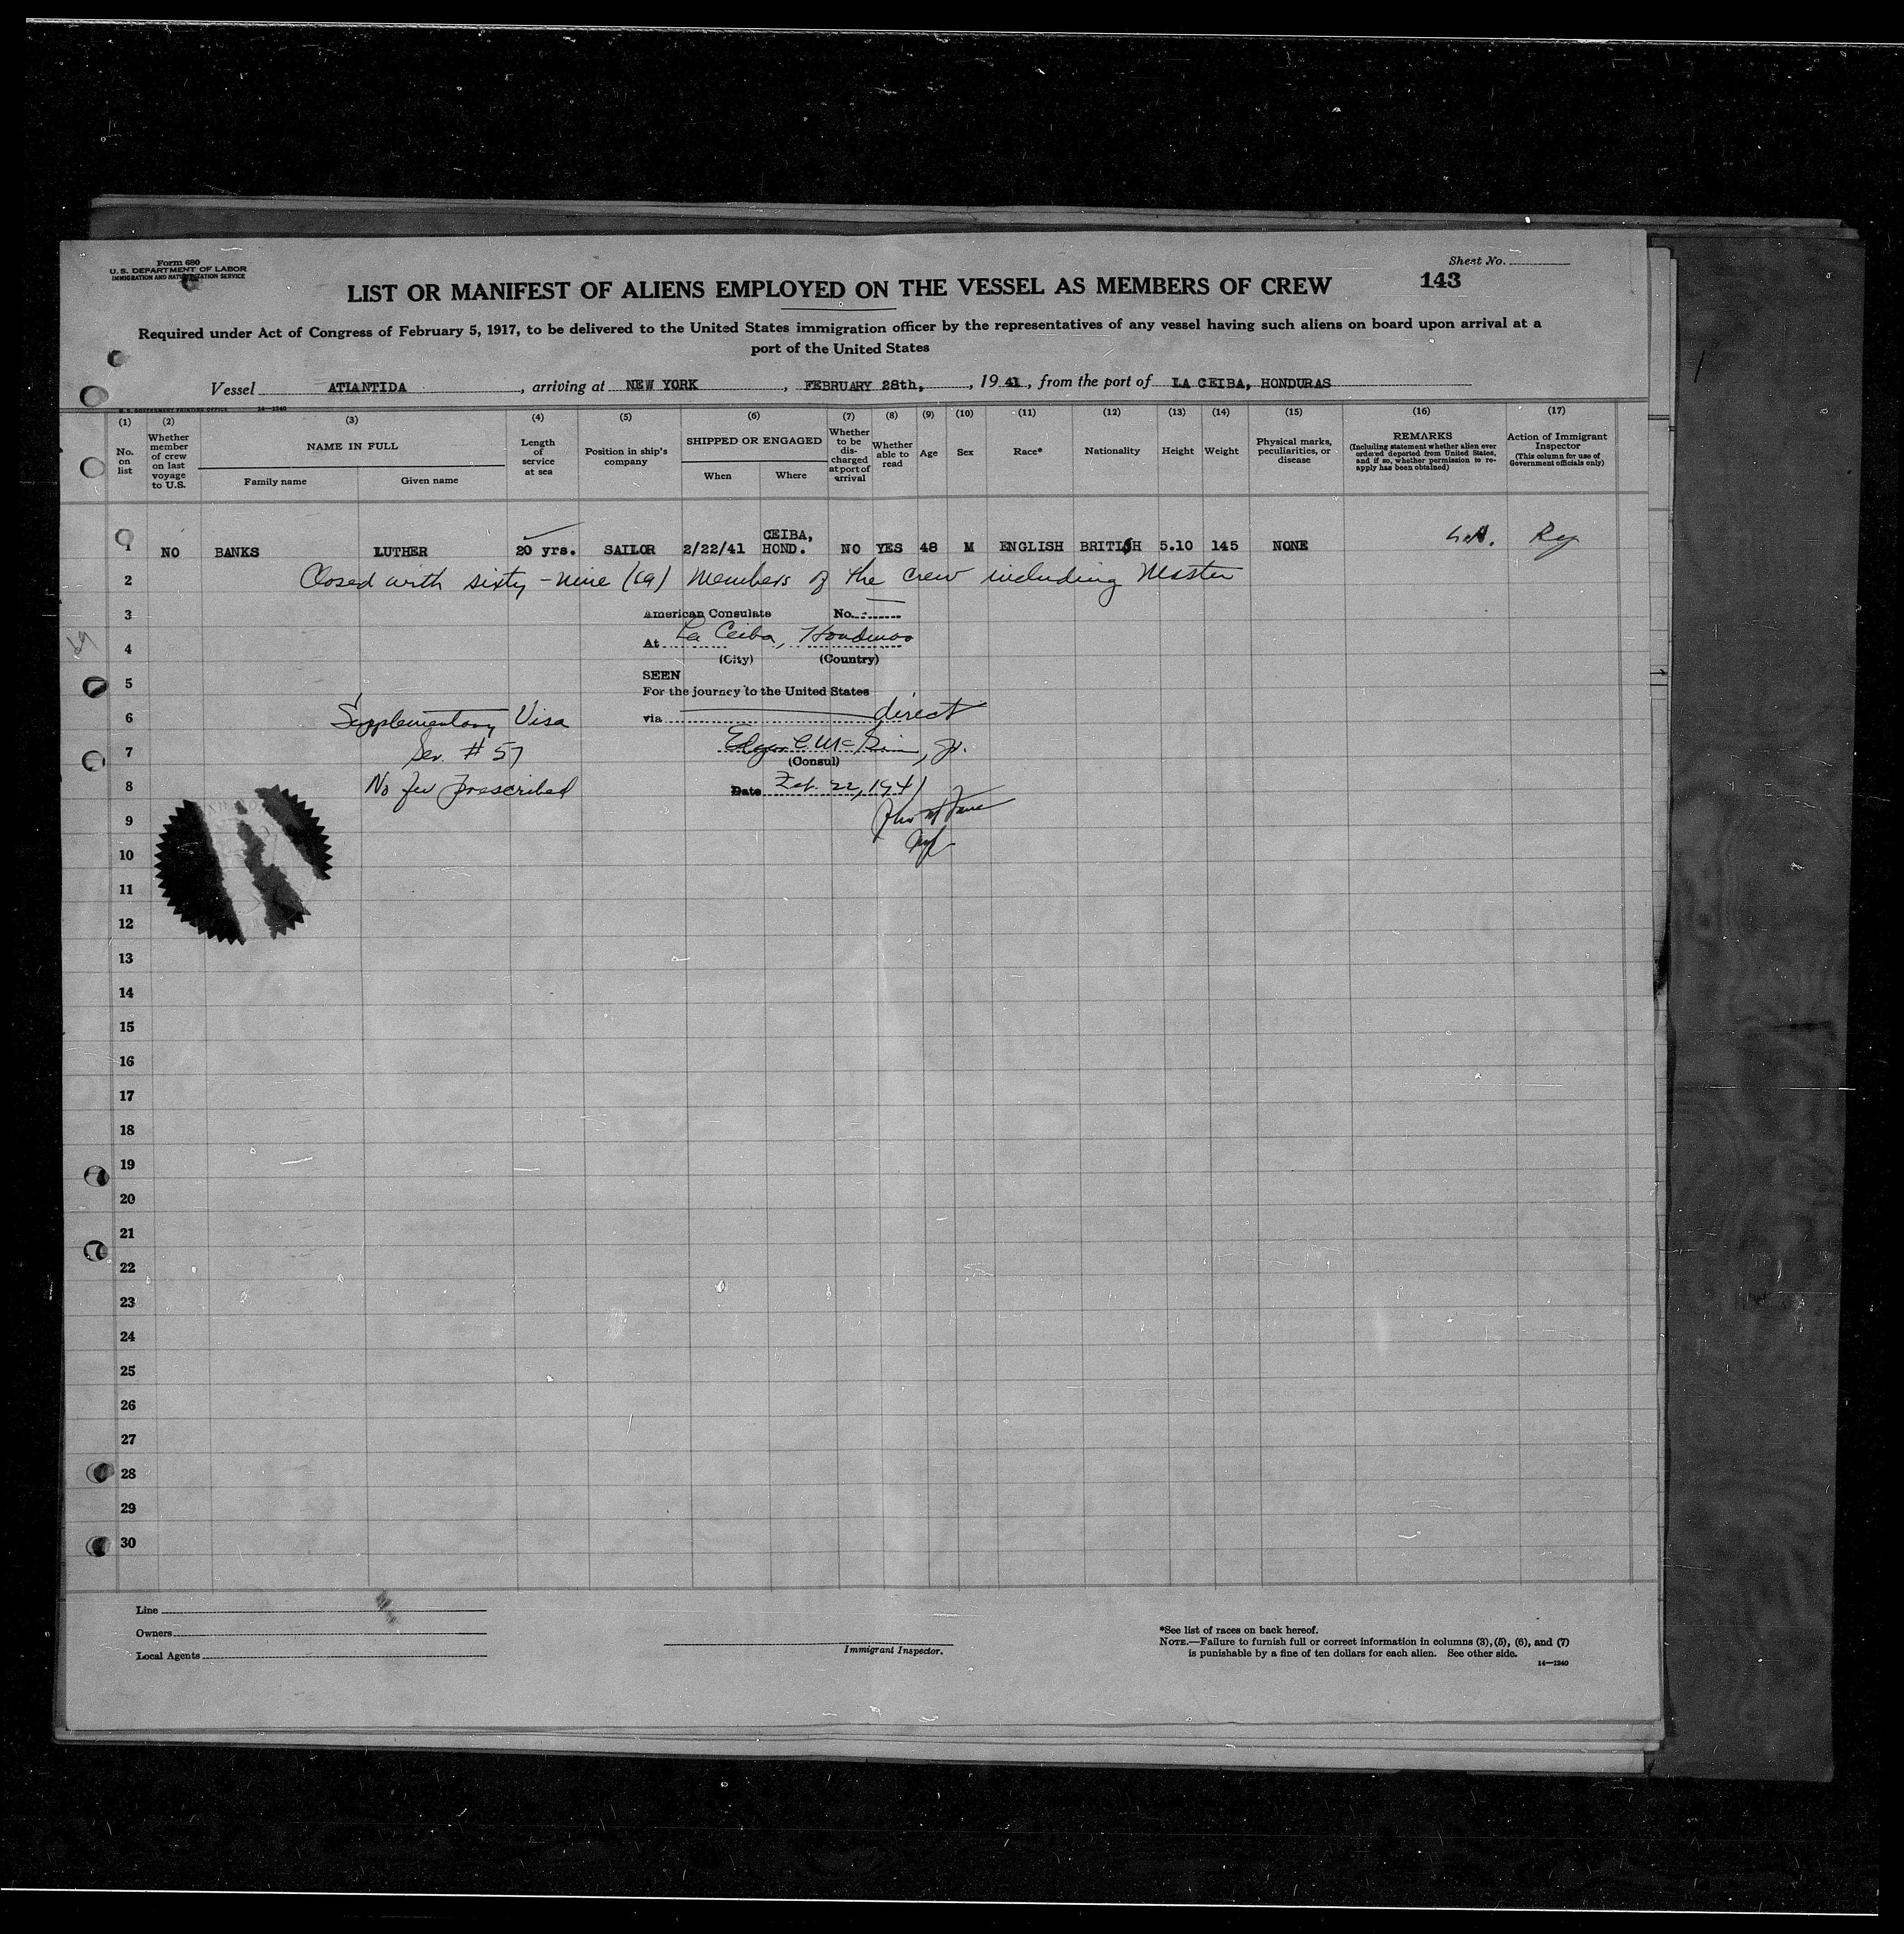 Form 680
U. S. DEPARTMENT OF LABOR
IMMIGRATION AND NATURALIZATION SERVICE
Sheet No.
143
LIST OR MANIFEST OF ALIENS EMPLOYED ON THE VESSEL AS MEMBERS OF CREW
Required under Act of Congress of February 5, 1917, to be delivered to the United States immigration officer by the representatives of any vessel having such aliens on board upon arrival at a
port of the United States
Vessel ATLANTIDA, arriving at NEW YORK, FEBRUARY 28th, , 19 41, from the port of LA CEIBA, HONDURAS
U. S. GOVERNMENT PRINTING OFFICE 14—1240
(1) (2) (3) (4) (5) (6) (7) (8) (9) (10) (11) (12) (13) (14) (15) (16) (17)
No. on list
Whether member of crew on last voyage to U.S.
NAME IN FULL
Family name
Given name
Length of service at sea
Position in ship's company
SHIPPED OR ENGAGED
When
Where
Whether to be discharged at port of arrival
Whether able to read
Age
Sex
Race*
Nationality
Height
Weight
Physical marks, peculiarities, or disease
REMARKS
(Including statement whether alien ever ordered deported from United States, and if so, whether permission to reapply has been obtained)
Action of Immigrant Inspector
(This column for use of Government officials only)
1 NO BANKS LUTHER 20 yrs. SAILOR 2/22/41 CEIBA, HOND. NO YES 48 M ENGLISH BRITISH 5.10 145 NONE
2 Closed with sixty-nine (69) members of the crew including Master
3 American Consulate No.
4 At La Ceiba, Honduras
(City) (Country)
5 SEEN
For the journey to the United States
6 Supplementary Visa via direct
7 Ser. # 57
(Consul)
8 No fee prescribed Date Feb. 22, 1941
9
10
11
12
13
14
15
16
17
18
19
20
21
22
23
24
25
26
27
28
29
30
Line
Owners
Local Agents
Immigrant Inspector.
*See list of races on back hereof.
NOTE.—Failure to furnish full or correct information in columns (3), (5), (6), and (7)
is punishable by a fine of ten dollars for each alien. See other side.
14—1240